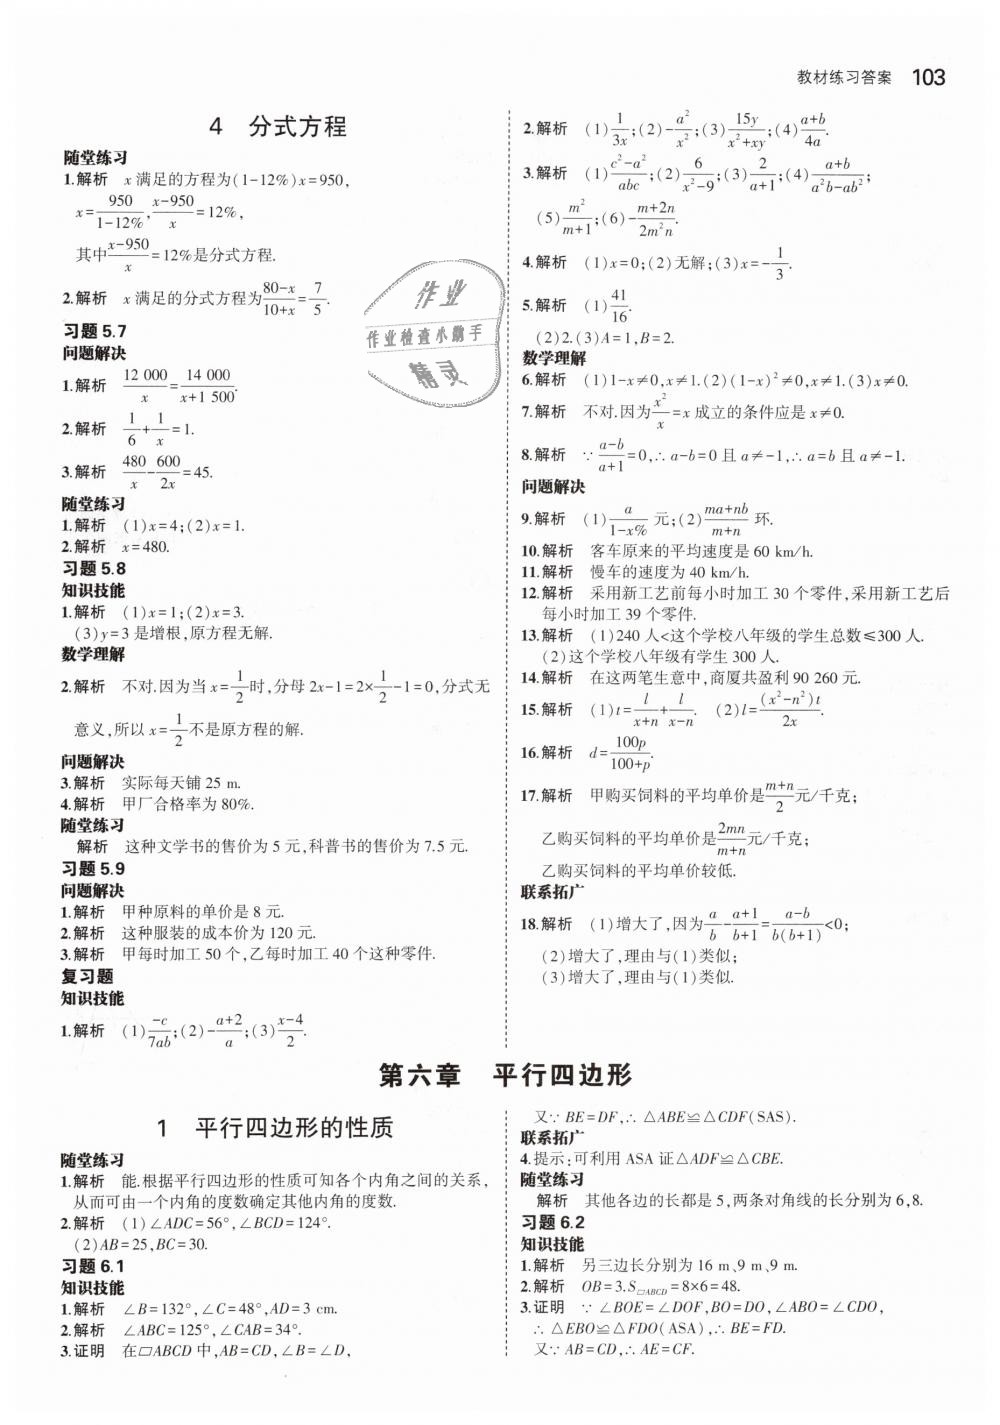 教材练习答案 103
4 分式方程
随堂练习
1.解析 x 满足的方程为(1-12%)x=950,
x=950/(1-12%),(x-950)/x=12%,
其中(x-950)/x=12%是分式方程.
2.解析 x 满足的分式方程为(80-x)/(10+x)=7/5.
习题 5.7
问题解决
1.解析 12 000/x=14 000/(x+1 500).
2.解析 1/6+1/x=1.
3.解析 480/x-600/2x=45.
随堂练习
1.解析 (1)x=4;(2)x=1.
2.解析 x=480.
习题 5.8
知识技能
1.解析 (1)x=1;(2)x=3.
(3)y=3 是增根,原方程无解.
数学理解
2.解析 不对.因为当 x=1/2时,分母 2x-1=2×1/2-1=0,分式无
意义,所以 x=1/2不是原方程的解.
问题解决
3.解析 实际每天铺 25 m.
4.解析 甲厂合格率为 80%.
随堂练习
解析 这种文学书的售价为 5 元,科普书的售价为 7.5 元.
习题 5.9
问题解决
1.解析 甲种原料的单价是 8 元.
2.解析 这种服装的成本价为 120 元.
3.解析 甲每时加工 50 个,乙每时加工 40 个这种零件.
复习题
知识技能
1.解析 (1)-c/7ab;(2)-(a+2)/a;(3)(x-4)/2.
2.解析 (1)1/3x;(2)-a²/x²;(3)15y/(x²+xy);(4)(a+b)/4a.
3.解析 (1)(c²-a²)/abc;(2)6/(x²-9);(3)2/(a+1);(4)(a+b)/(a²b-ab²);
(5)m²/(m+1);(6)-(m+2n)/2m²n.
4.解析 (1)x=0;(2)无解;(3)x=-1/3.
5.解析 (1)41/16.
(2)2.(3)A=1,B=2.
数学理解
6.解析 (1)1-x≠0,x≠1.(2)(1-x)²≠0,x≠1.(3)x≠0.
7.解析 不对.因为x²/x=x 成立的条件应是 x≠0.
8.解析 ∵ (a-b)/(a+1)=0,∴ a-b=0 且 a≠-1,∴ a=b 且 a≠-1.
问题解决
9.解析 (1)a/(1-x%)元;(2)(ma+nb)/(m+n)环.
10.解析 客车原来的平均速度是 60 km/h.
11.解析 慢车的速度为 40 km/h.
12.解析 采用新工艺前每小时加工 30 个零件,采用新工艺后
每小时加工 39 个零件.
13.解析 (1)240 人<这个学校八年级的学生总数≤300 人.
(2)这个学校八年级有学生 300 人.
14.解析 在这两笔生意中,商厦共盈利 90 260 元.
15.解析 (1)t=l/(x+n)+l/(x-n). (2)l=(x²-n²)t/2x.
16.解析 d=100p/(100+p).
17.解析 甲购买饲料的平均单价是(m+n)/2元/千克;
乙购买饲料的平均单价是2mn/(m+n)元/千克;
乙购买饲料的平均单价较低.
联系拓广
18.解析 (1)增大了,因为a/b-(a+1)/(b+1)=(a-b)/b(b+1)<0;
(2)增大了,理由与(1)类似;
(3)增大了,理由与(1)类似.
作业
作业检查小助手
精灵
第六章 平行四边形
1 平行四边形的性质
随堂练习
1.解析 能.根据平行四边形的性质可知各个内角之间的关系,
从而可由一个内角的度数确定其他内角的度数.
2.解析 (1)∠ADC=56°,∠BCD=124°.
(2)AB=25,BC=30.
习题 6.1
知识技能
1.解析 ∠B=132°,∠C=48°,AD=3 cm.
2.解析 ∠ABC=125°,∠CAB=34°.
3.证明 在▱ABCD 中,AB=CD,∠B=∠D,
又∵ BE=DF,∴ △ABE≌△CDF(SAS).
联系拓广
4.提示:可利用 ASA 证△ADF≌△CBE.
随堂练习
解析 其他各边的长都是 5,两条对角线的长分别为 6,8.
习题 6.2
知识技能
1.解析 另三边长分别为 16 m、9 m、9 m.
2.解析 OB=3.S▱ABCD=8×6=48.
3.证明 ∵ ∠BOE=∠DOF,BO=DO,∠ABO=∠CDO,
∴ △EBO≌△FDO(ASA),∴ BE=FD.
又∵ AB=CD,∴ AE=CF.